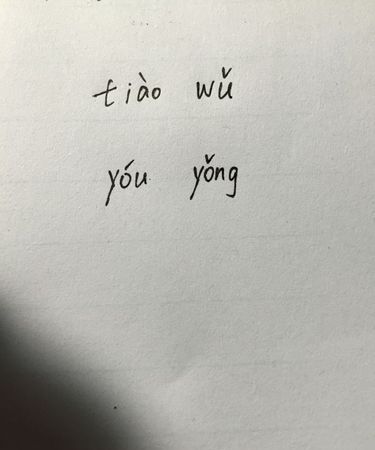 tiào wǔ
yóu yǒng